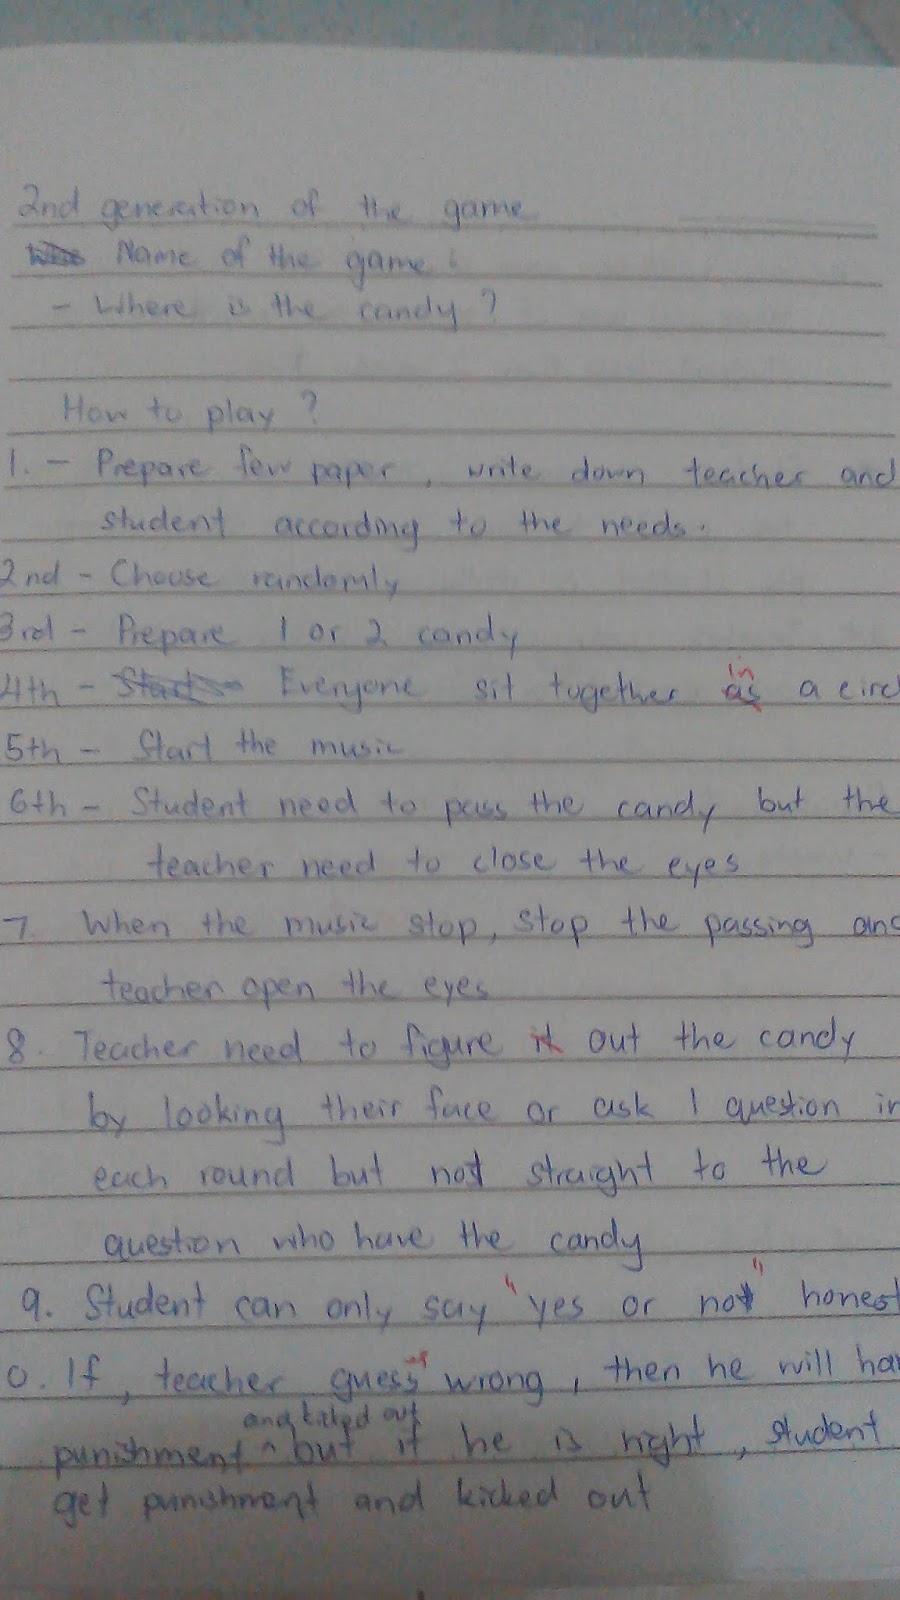 2nd generation of the game
Name of the game :
- Where is the candy ?
How to play ?
1. - Prepare few paper, write down teacher and
student according to the needs.
2nd - Choose randomly
3rd - Prepare 1 or 2 candy
4th - Start Everyone sit together as in a circ
5th - Start the music
6th - Student need to pass the candy but the
teacher need to close the eyes
7. When the music stop, stop the passing and
teacher open the eyes
8. Teacher need to figure it out the candy
by looking their face or ask 1 question in
each round but not straight to the
question who have the candy
9. Student can only say "yes or not" honest
0. If, teacher guess wrong, then he will hav
punishment ^ and kicked out but if he is right, student
get punishment and kicked out